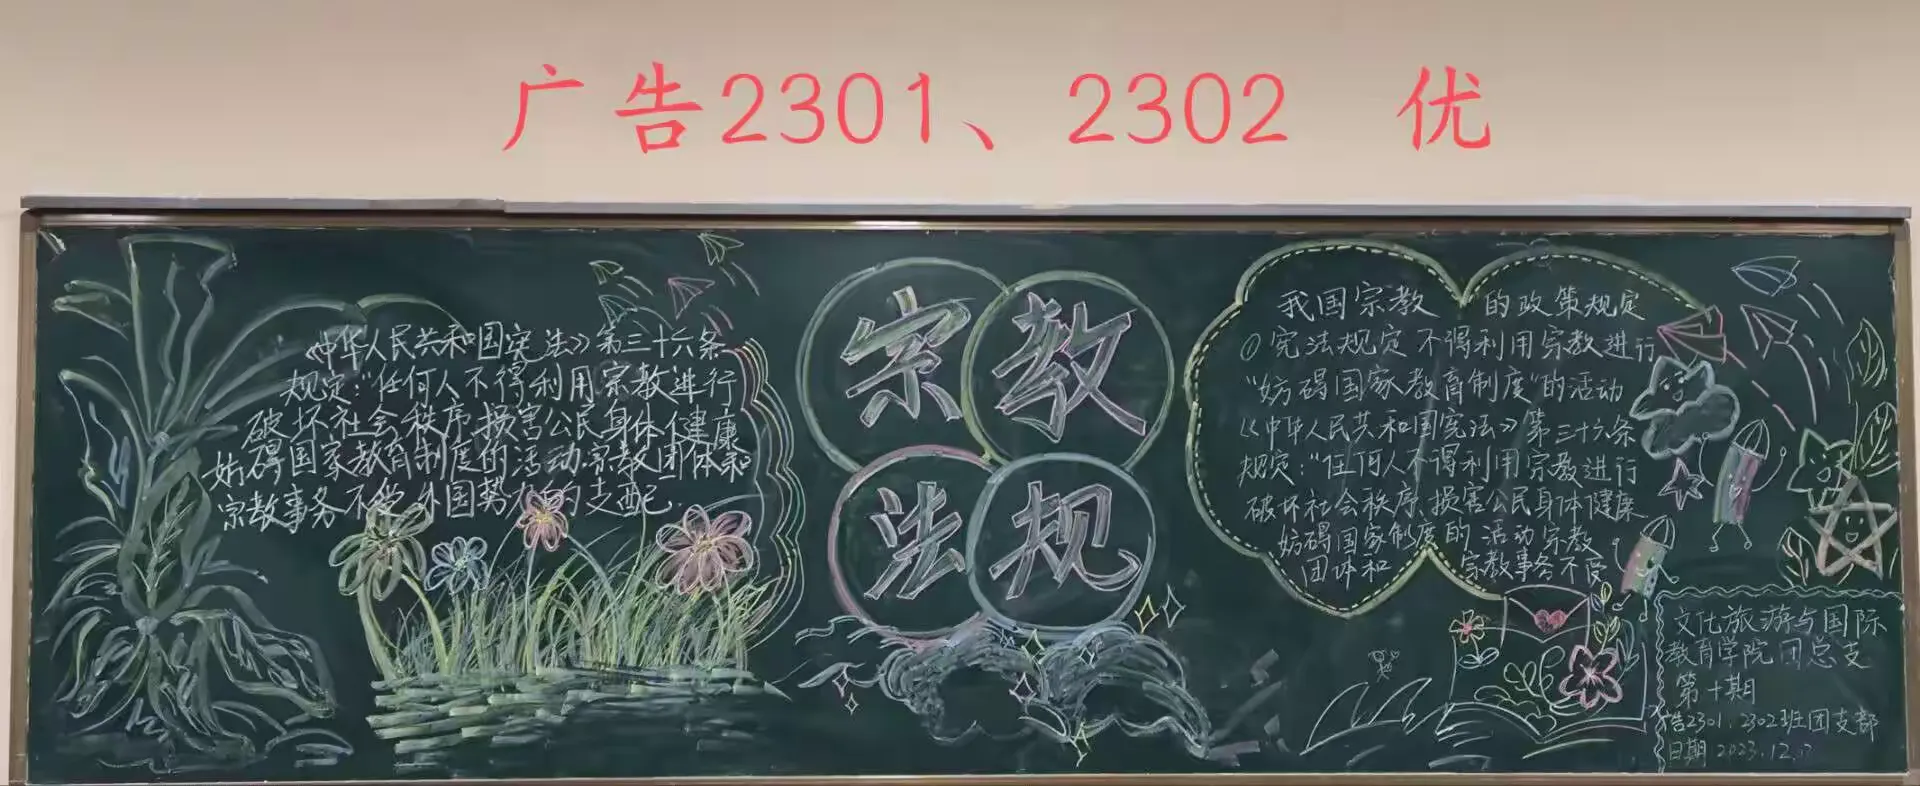 广告2301、2302 优
《中华人民共和国宪法》第三十六条
规定:“任何人不得利用宗教进行
破坏社会秩序损害公民身体健康
妨碍国家教育制度的活动.宗教团体和
宗教事务不受外国势力的支配.
宗教
法规
我国宗教 的政策规定
①宪法规定不得利用宗教进行
“妨碍国家教育制度”的活动
《中华人民共和国宪法》第三十六条
规定:“任何人不得利用宗教进行
破坏社会秩序、损害公民身体健康
妨碍国家制度的活动宗教
团体和 宗教事务不受
文化旅游与国际
教育学院团总支
第十期
广告2301、2302班团支部
日期2023.12.